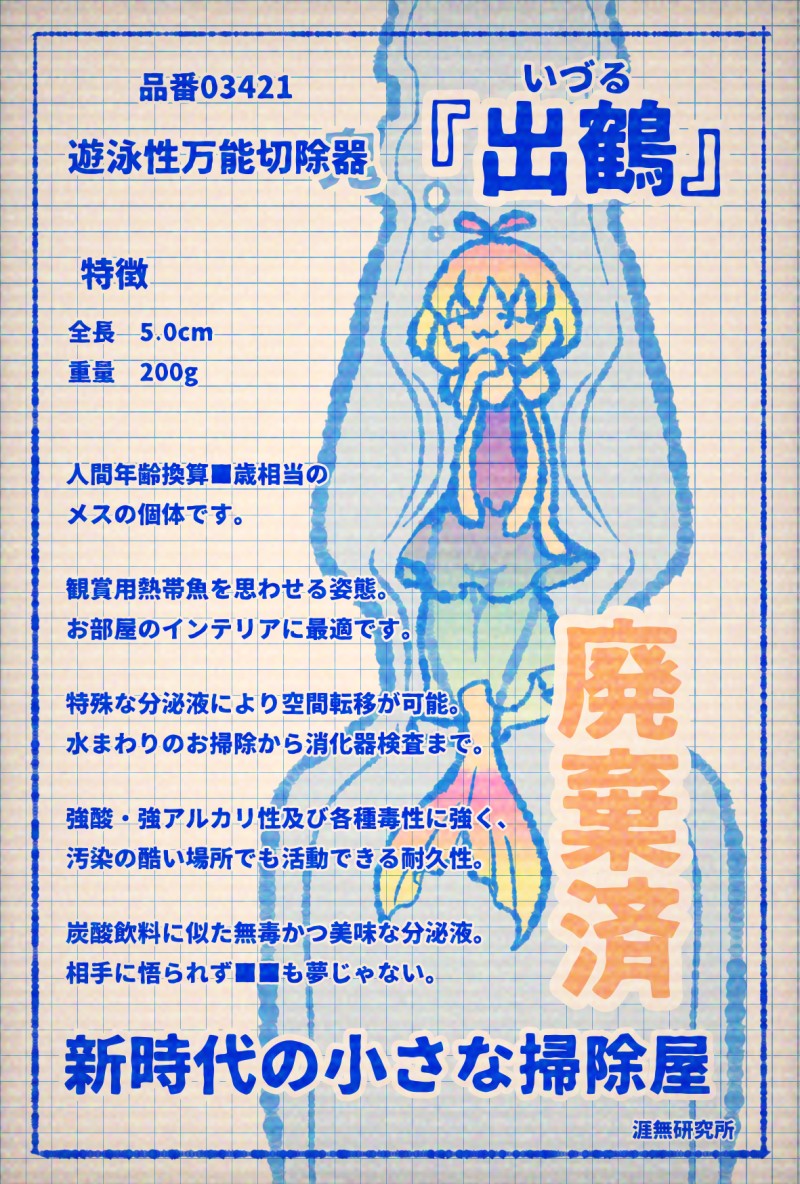 品番03421
いづる
『出鶴』
遊泳性万能切除器
特徴
全長 5.0cm
重量 200g
人間年齢換算■歳相当の
メスの個体です。
観賞用熱帯魚を思わせる姿態。
お部屋のインテリアに最適です。
特殊な分泌液により空間転移が可能。
水まわりのお掃除から消化器検査まで。
強酸・強アルカリ性及び各種毒性に強く、
汚染の酷い場所でも活動できる耐久性。
炭酸飲料に似た無毒かつ美味な分泌液。
相手に悟られず■■も夢じゃない。
廃棄済
新時代の小さな掃除屋
涯無研究所